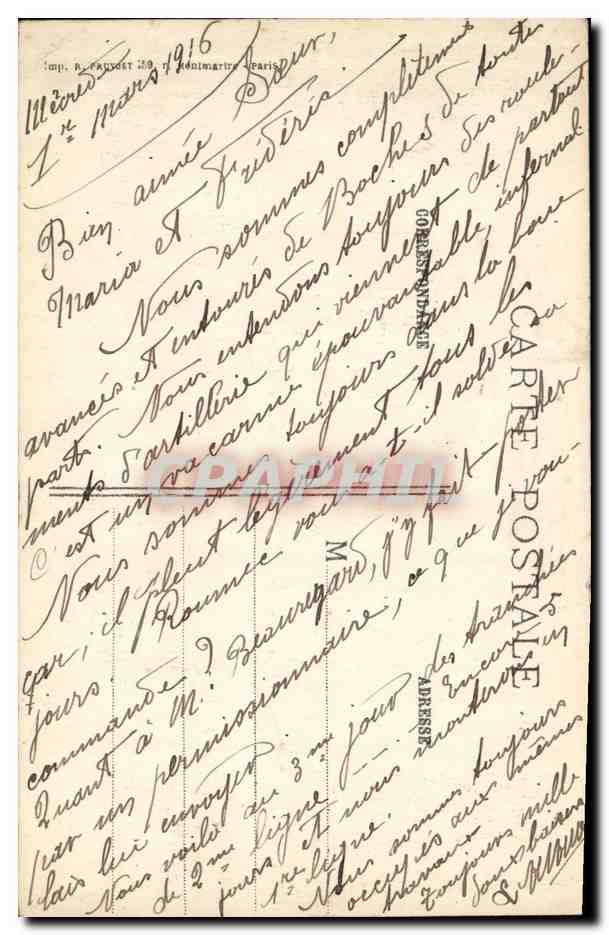 Imp. R. PRUVOST 159, r. Montmartre - Paris
Mécredi
1er Mars 1916
Bien aimée Soeur,
Maria et Frédéris.
Nous sommes complètement
avancés et entourés de Boches de toute
part. Nous entendons toujours des roule-
ments d'artillerie qui viennent de partout
C'est un vacarme épouvantable, infernal
Nous sommes toujours dans la boue
car, il pleut légèrement tous les
jours. Roumec vous a-t-il soldé sa
commande?
Quant à M. Beauregard, j'y fait
par un permissionnaire, ce que je vou-
lais lui envoyer.
Nous voilà au 3me jour des tranchées
de 2me ligne ---. Encore 5
jours et nous monterons en
1re ligne.
Nous sommes toujours
occupés aux mêmes
travaux
Toujours mille
doux baisers
CORRESPONDANCE
CARTE POSTALE
ADRESSE
M
CPARAMA